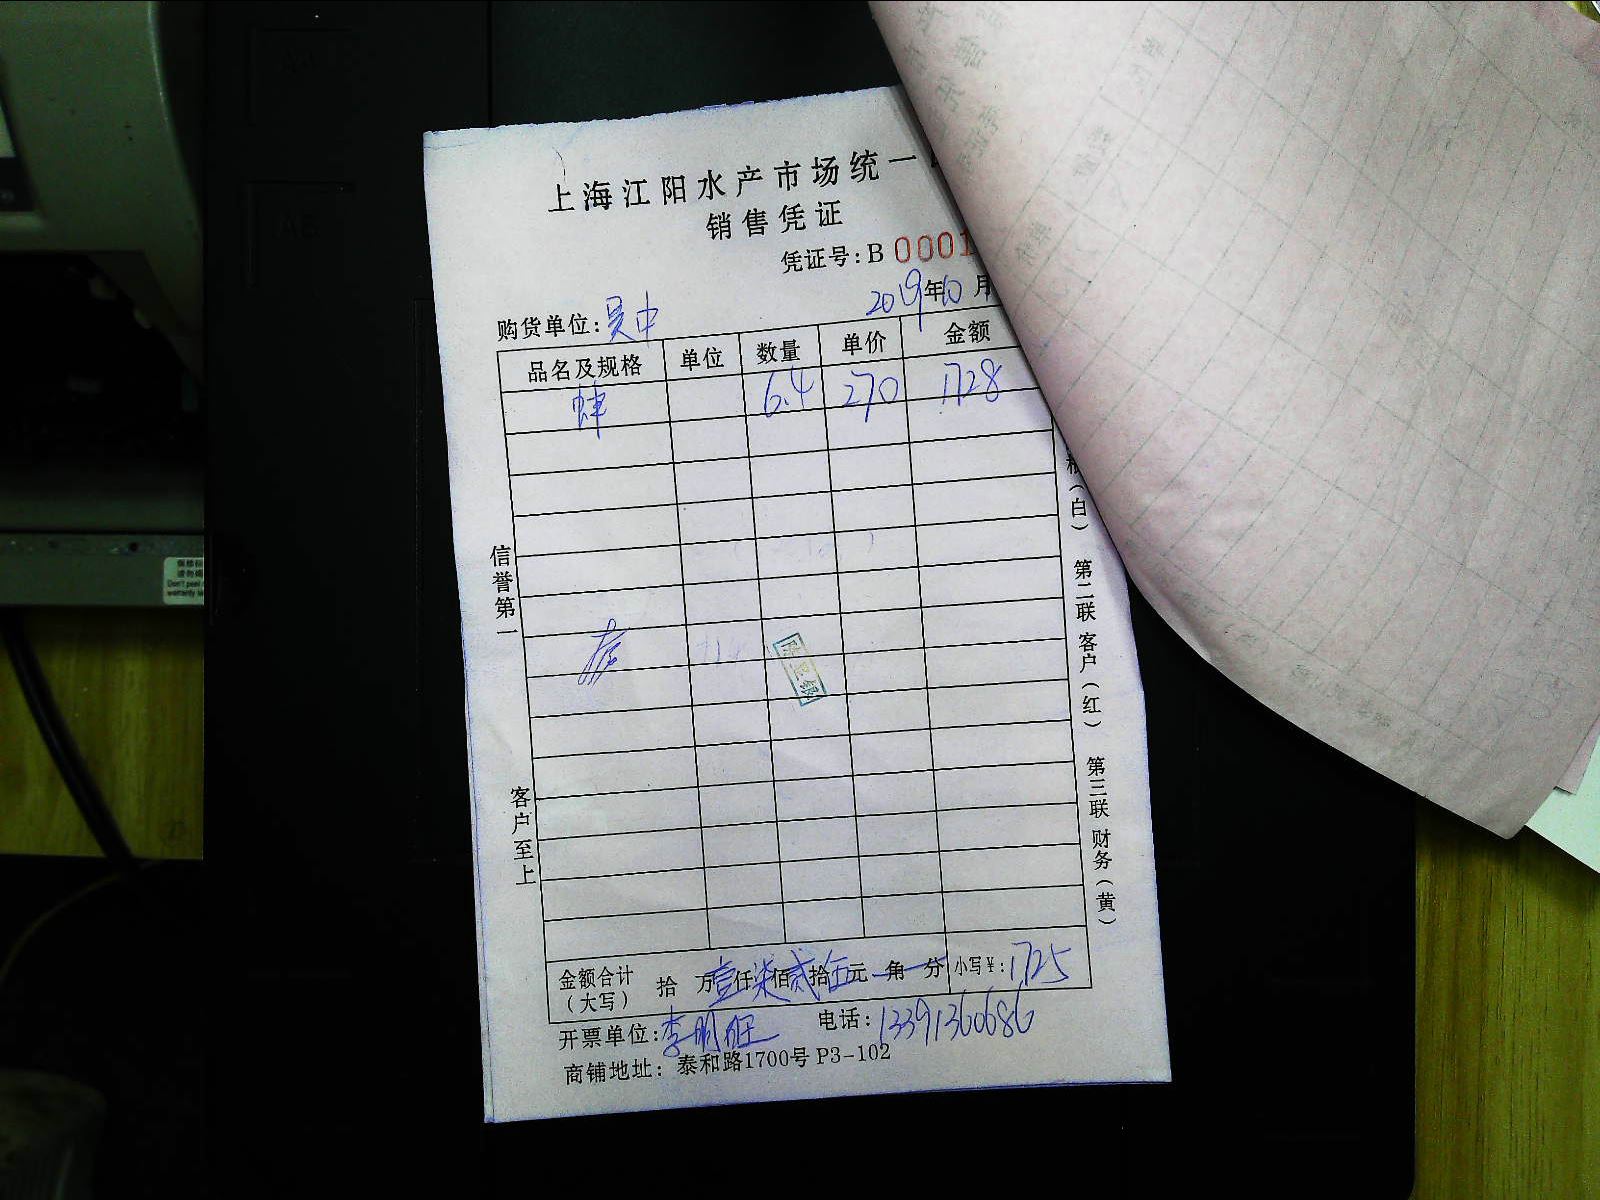 上海江阳水产市场统一
销售凭证
凭证号:B 0001
购货单位:吴中 2019年10月
品名及规格 单位 数量 单价 金额
6.4 270 1728
信誉第一
客户至上
(白) 第二联 客户(红) 第三联 财务(黄)
金额合计(大写) 拾 万壹仟柒佰贰拾伍元 角 分 小写¥:1725
开票单位:李明旺 电话:13391360686
商铺地址: 泰和路1700号 P3-102
Don't peel
warranty